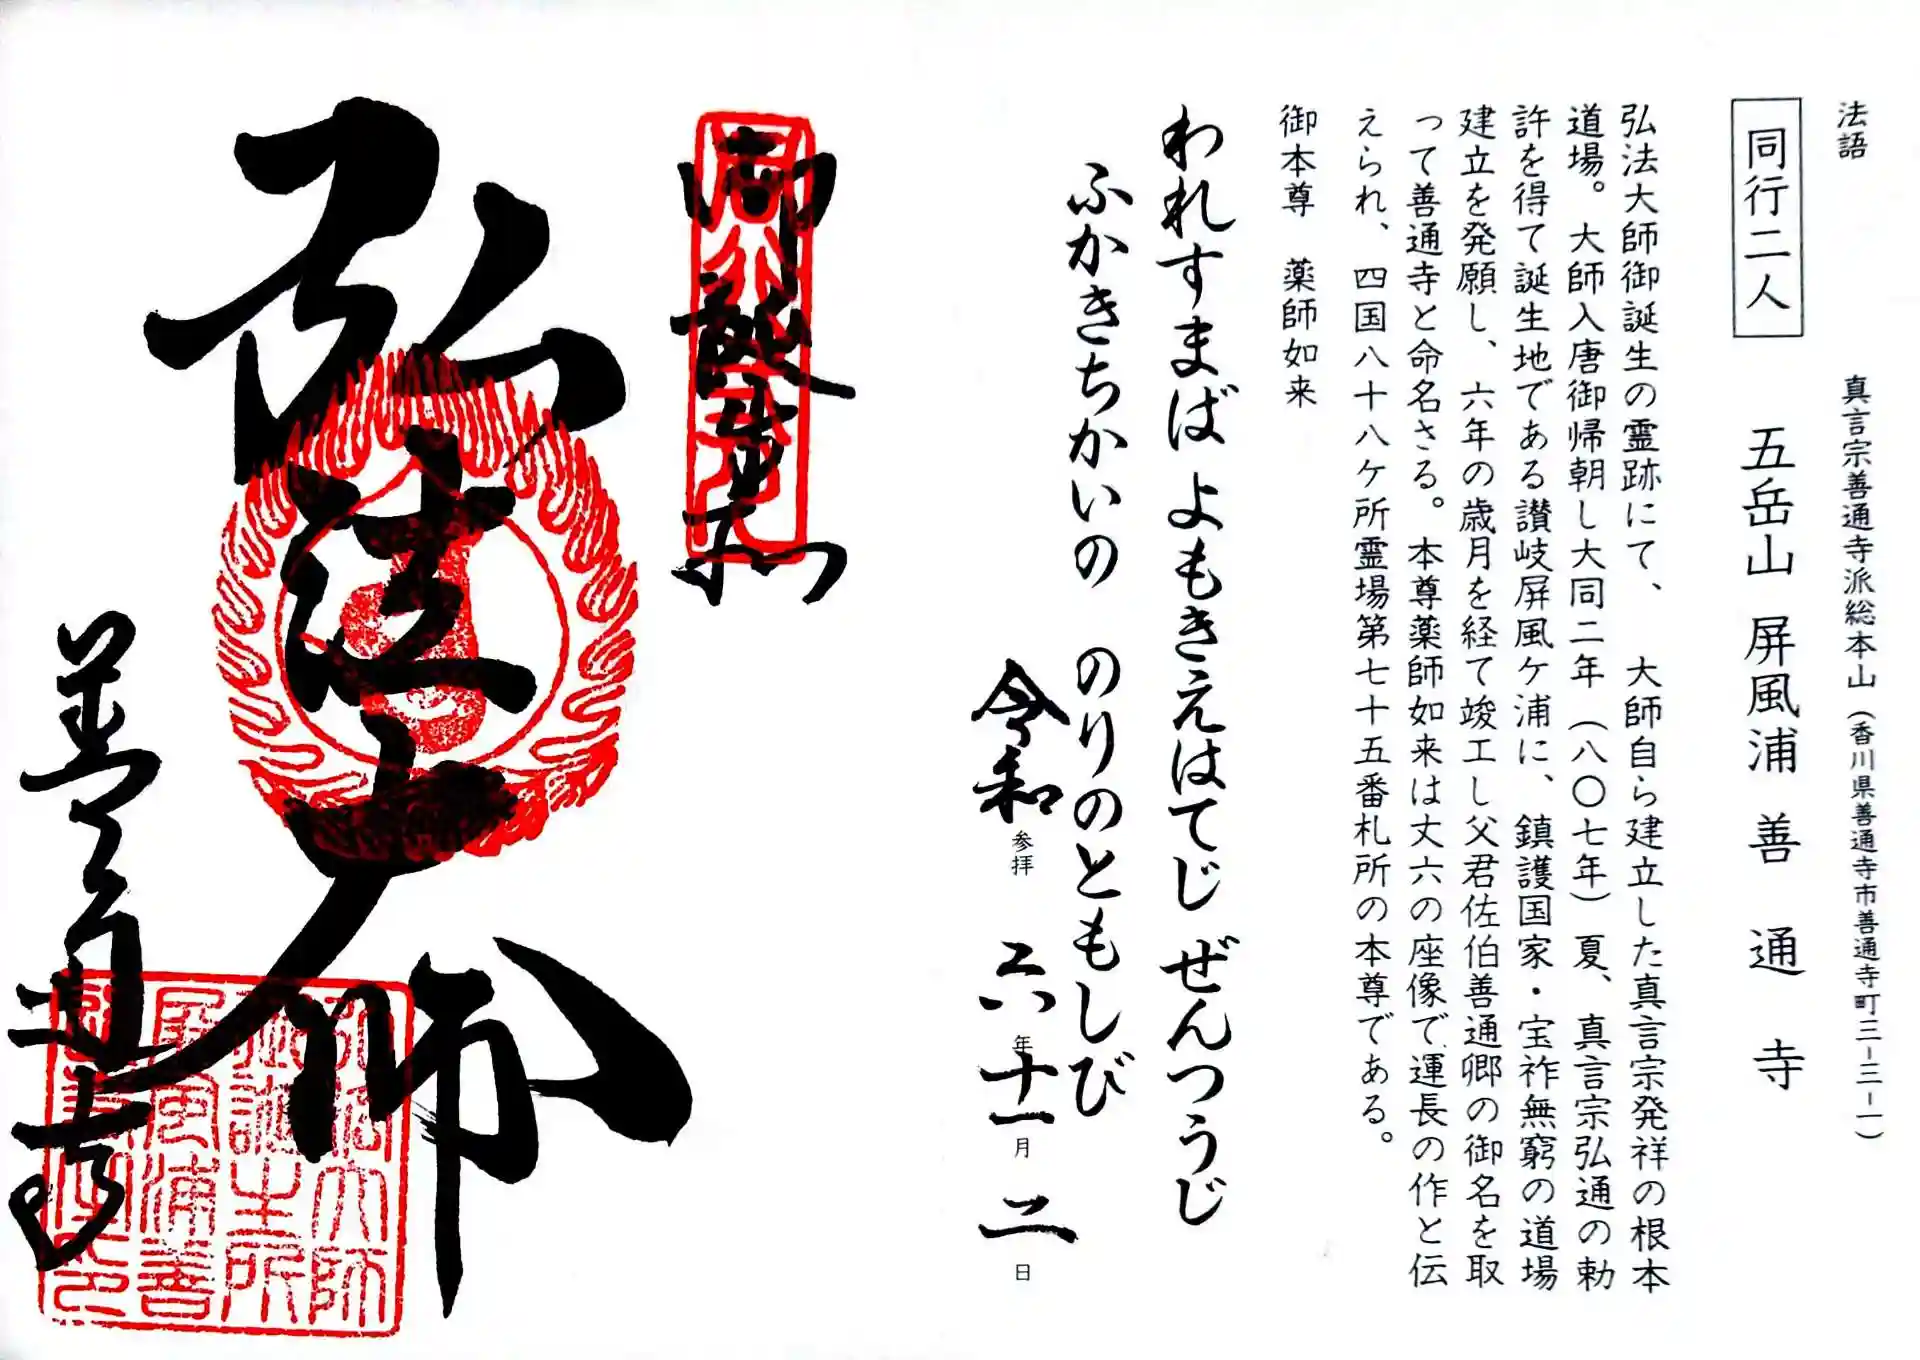 法語
真言宗善通寺派総本山（香川県善通寺市善通寺町三－三－一）
同行二人
五岳山 屏風浦 善通寺
弘法大師御誕生の霊跡にて、 大師自ら建立した真言宗発祥の根本
道場。大師入唐御帰朝し大同二年（八〇七年）夏、真言宗弘通の勅
許を得て誕生地である讃岐屏風ケ浦に、鎮護国家・宝祚無窮の道場
建立を発願し、六年の歳月を経て竣工し父君佐伯善通卿の御名を取
って善通寺と命名さる。本尊薬師如来は丈六の座像で運長の作と伝
えられ、四国八十八ケ所霊場第七十五番札所の本尊である。
御本尊 薬師如来
われすまば よもきえはてじ ぜんつうじ
ふかきちかいの のりのともしび
令和 参拝 六年 十一月 二日
弘法大師
善通寺
弘法大師
御誕生所
屏風浦善